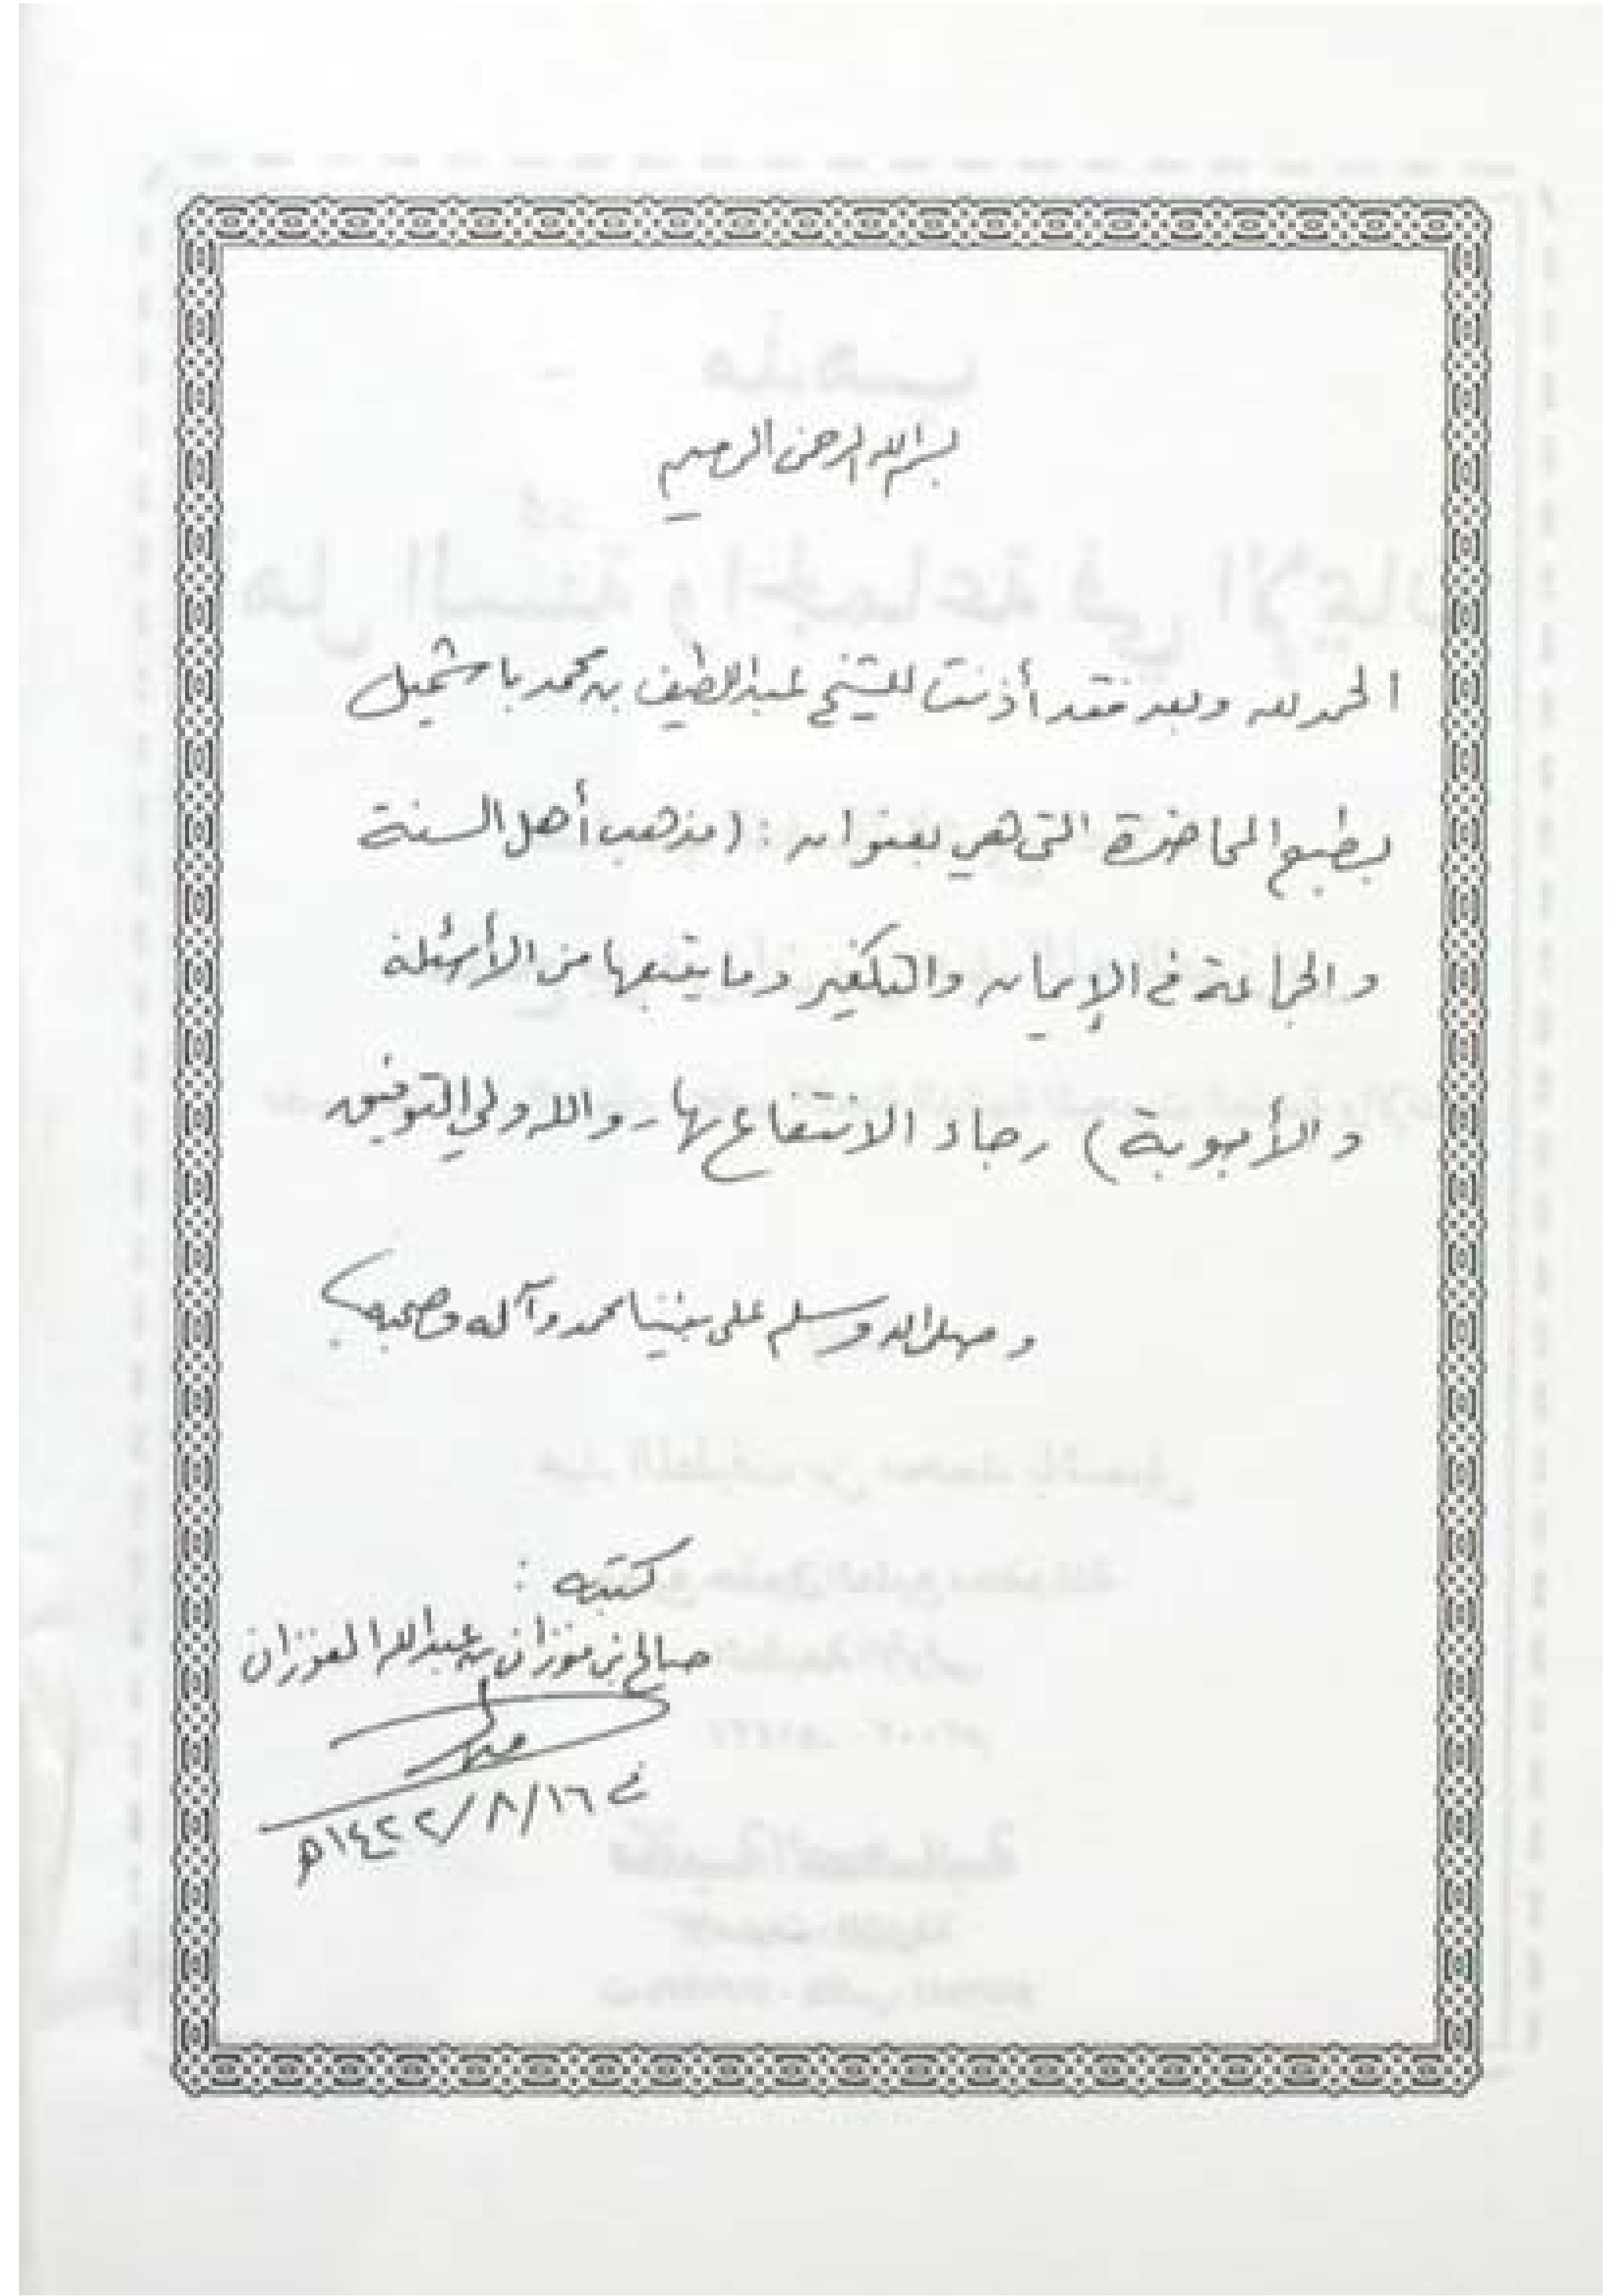 بسم الله الرحمن الرحيم
الحمد لله وبعد فقد أذنت للشيخ عبد اللطيف بن محمد باشميل
بطبع المحاضرة التي هي بعنوان : (مذهب أهل السنة
والجماعة في الإيمان والتكفير وما يتبعها من الأسئلة
والأجوبة) رجاء الانتفاع بها - والله ولي التوفيق
وصلى الله وسلم على نبينا محمد وآله وصحبه
كتبه :
صالح بن فوزان بن عبد الله الفوزان
في ١٦/٨/١٤٢٢هـ